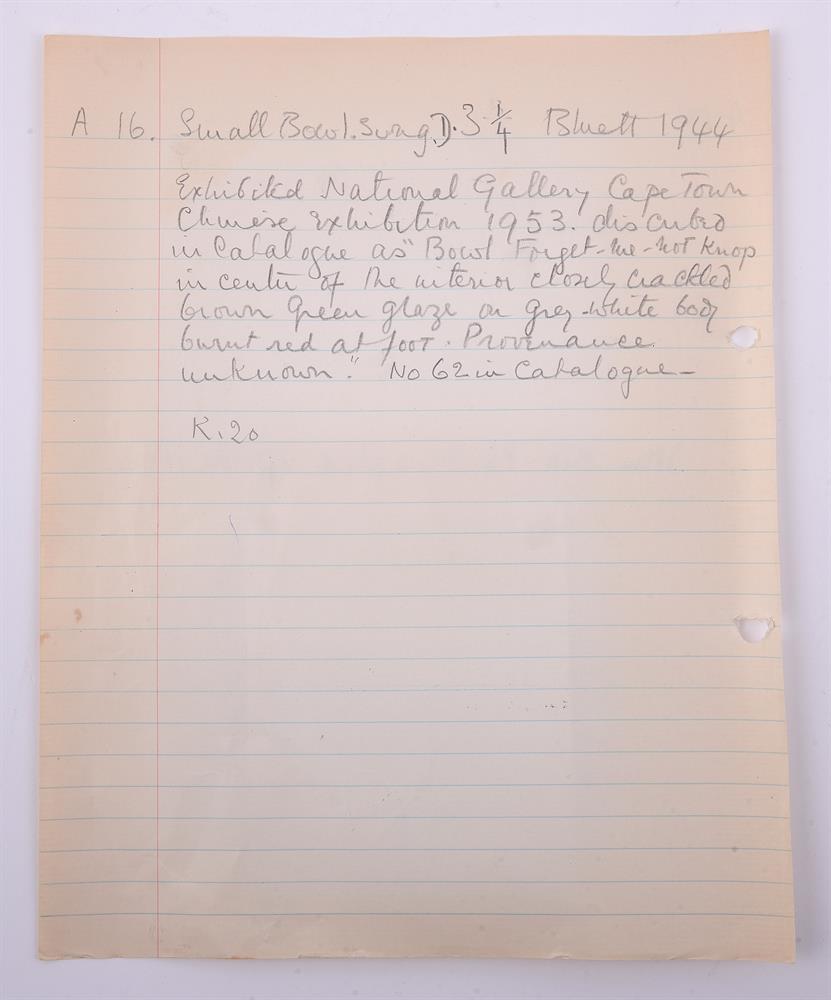 A 16. Small Bowl. Sung. D. 3 1/4 Bluett 1944
Exhibited National Gallery Cape Town
Chinese Exhibition 1953. discribed
in Catalogue as "Bowl Forget-me-not Knop
in center of the interior closely crackled
brown Green glaze on grey-white body
burnt red at foot. Provenance
unknown." No 62 in Catalogue -
K.20